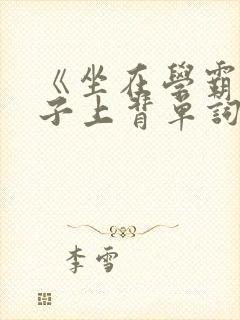 《坐在學霸
子上背單詞
李雪